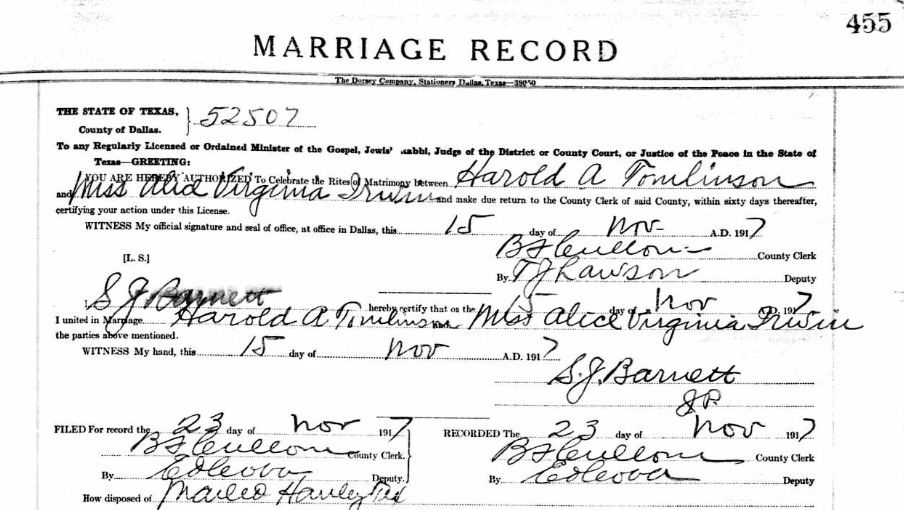 455
MARRIAGE RECORD
The Dorsey Company, Stationers Dallas, Texas—38050
THE STATE OF TEXAS,
County of Dallas. } 52507
To any Regularly Licensed or Ordained Minister of the Gospel, Jewis' abbi, Judge of the District or County Court, or Justice of the Peace in the State of
Texas—GREETING:
YOU ARE HEREBY AUTHORIZED To Celebrate the Rites of Matrimony between Harold A Tomlinson
and Miss Alice Virginia Irwin and make due return to the County Clerk of said County, within sixty days thereafter,
certifying your action under this License.
WITNESS My official signature and seal of office, at office in Dallas, this 15 day of Nov A.D. 1917
[L. S.] B F Cullom County Clerk
By T J Lawson Deputy
I, S J Barnett hereby certify that on the 15 day of Nov 1917
I united in Marriage Harold A Tomlinson Miss Alice Virginia Irwin
the parties above mentioned.
WITNESS My hand, this 15 day of Nov A.D. 1917
S. J. Barnett
J P
FILED For record the 23 day of Nov 1917 RECORDED The 23 day of Nov 1917
B F Cullom County Clerk. B F Cullom County Clerk
By Deputy. By Deputy
How disposed of Mailed